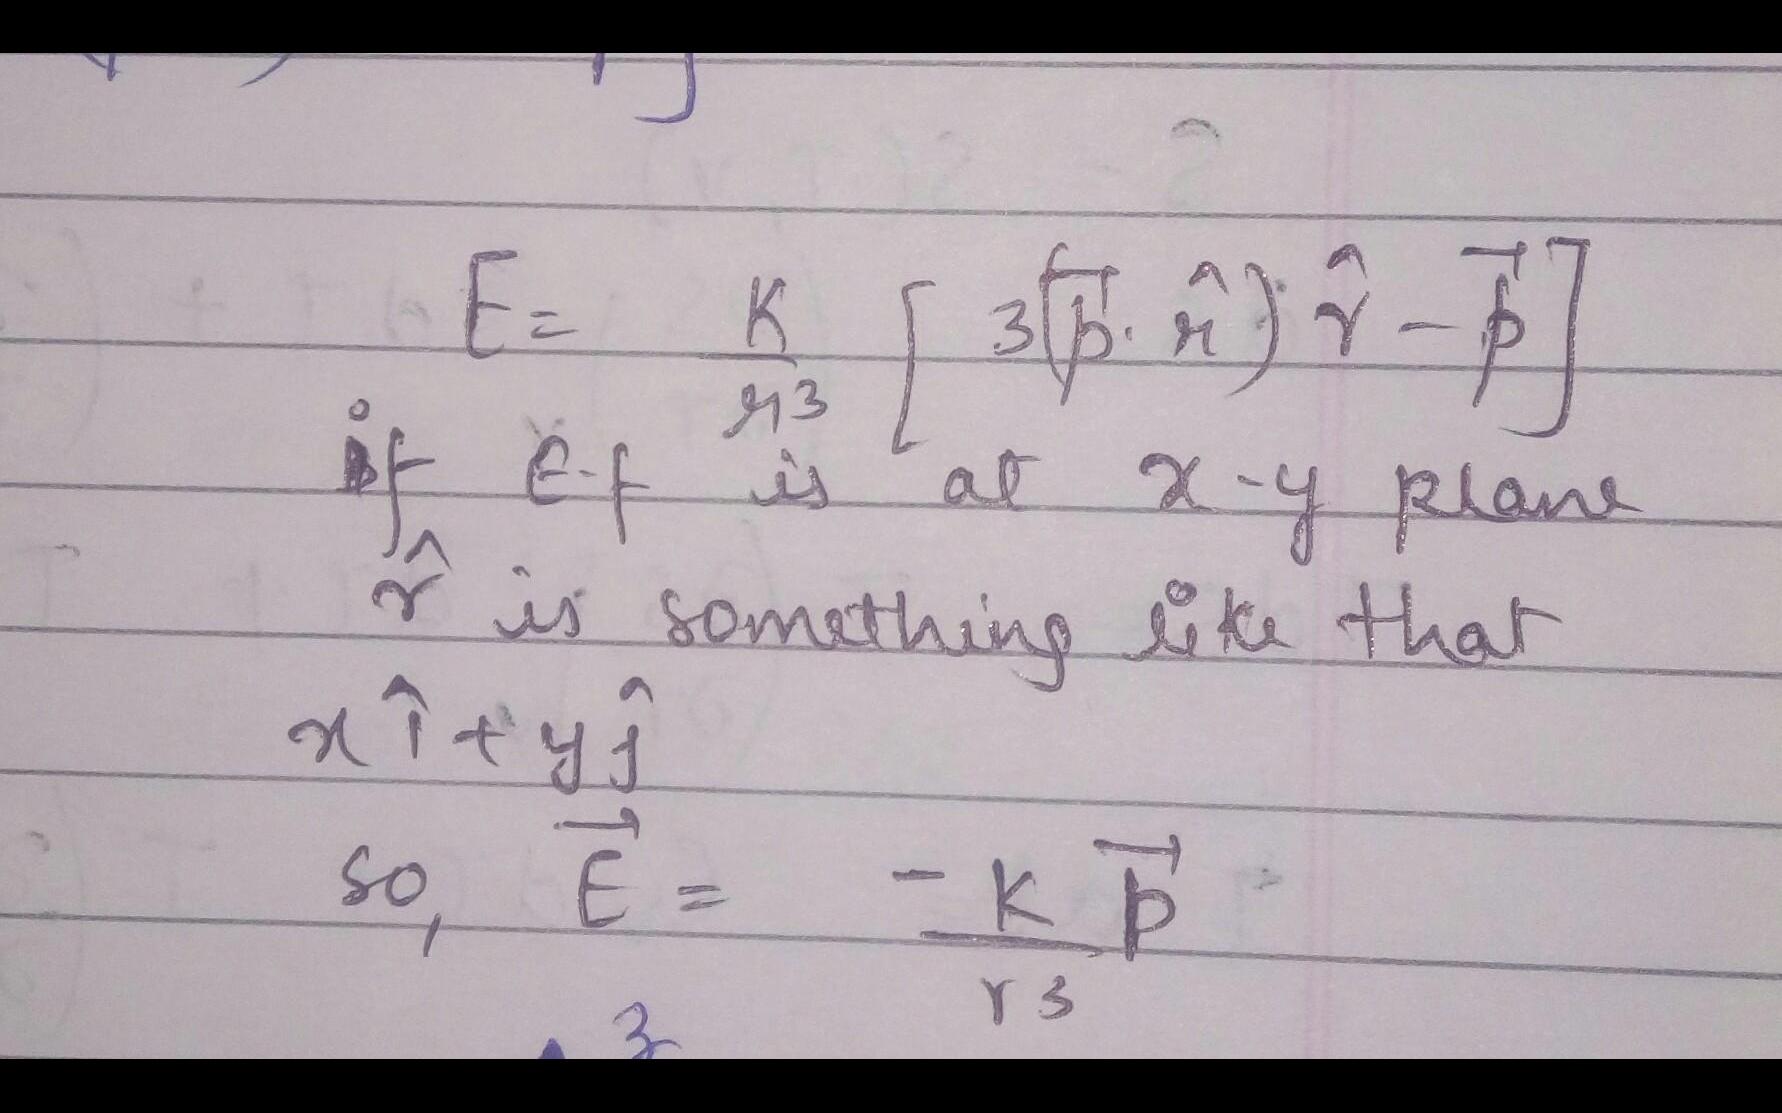 E = K/r3 [ 3(p⃗. r̂) r̂ - p⃗ ]
if E.f is at x-y plane
r̂ is something like that
x î + y ĵ
so, E⃗ = - K p⃗ / r3
3